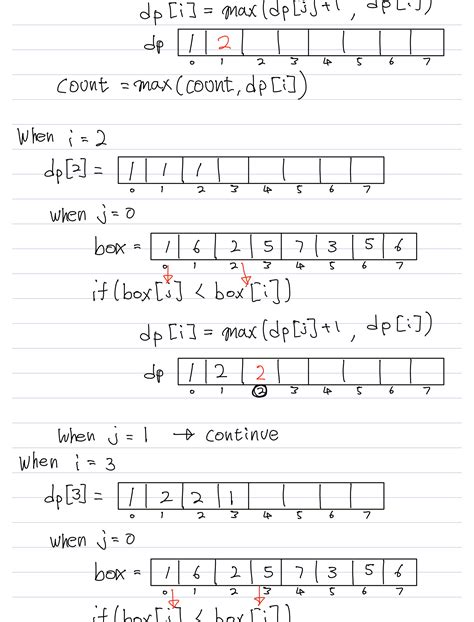 dp[i] = max(dp[j]+1, dp[i])
dp 1 2
0 1 2 3 4 5 6 7
count = max(count, dp[i])
When i = 2
dp[2] = 1 1 1
0 1 2 3 4 5 6 7
when j = 0
box = 1 6 2 5 7 3 5 6
0 1 2 3 4 5 6 7
if(box[j] < box[i])
dp[i] = max(dp[j]+1, dp[i])
dp 1 2 2
0 1 2 3 4 5 6 7
When j = 1 → continue
When i = 3
dp[3] = 1 2 2 1
0 1 2 3 4 5 6 7
when j = 0
box = 1 6 2 5 7 3 5 6
0 1 2 3 4 5 6 7
if(box[j] < box[i])